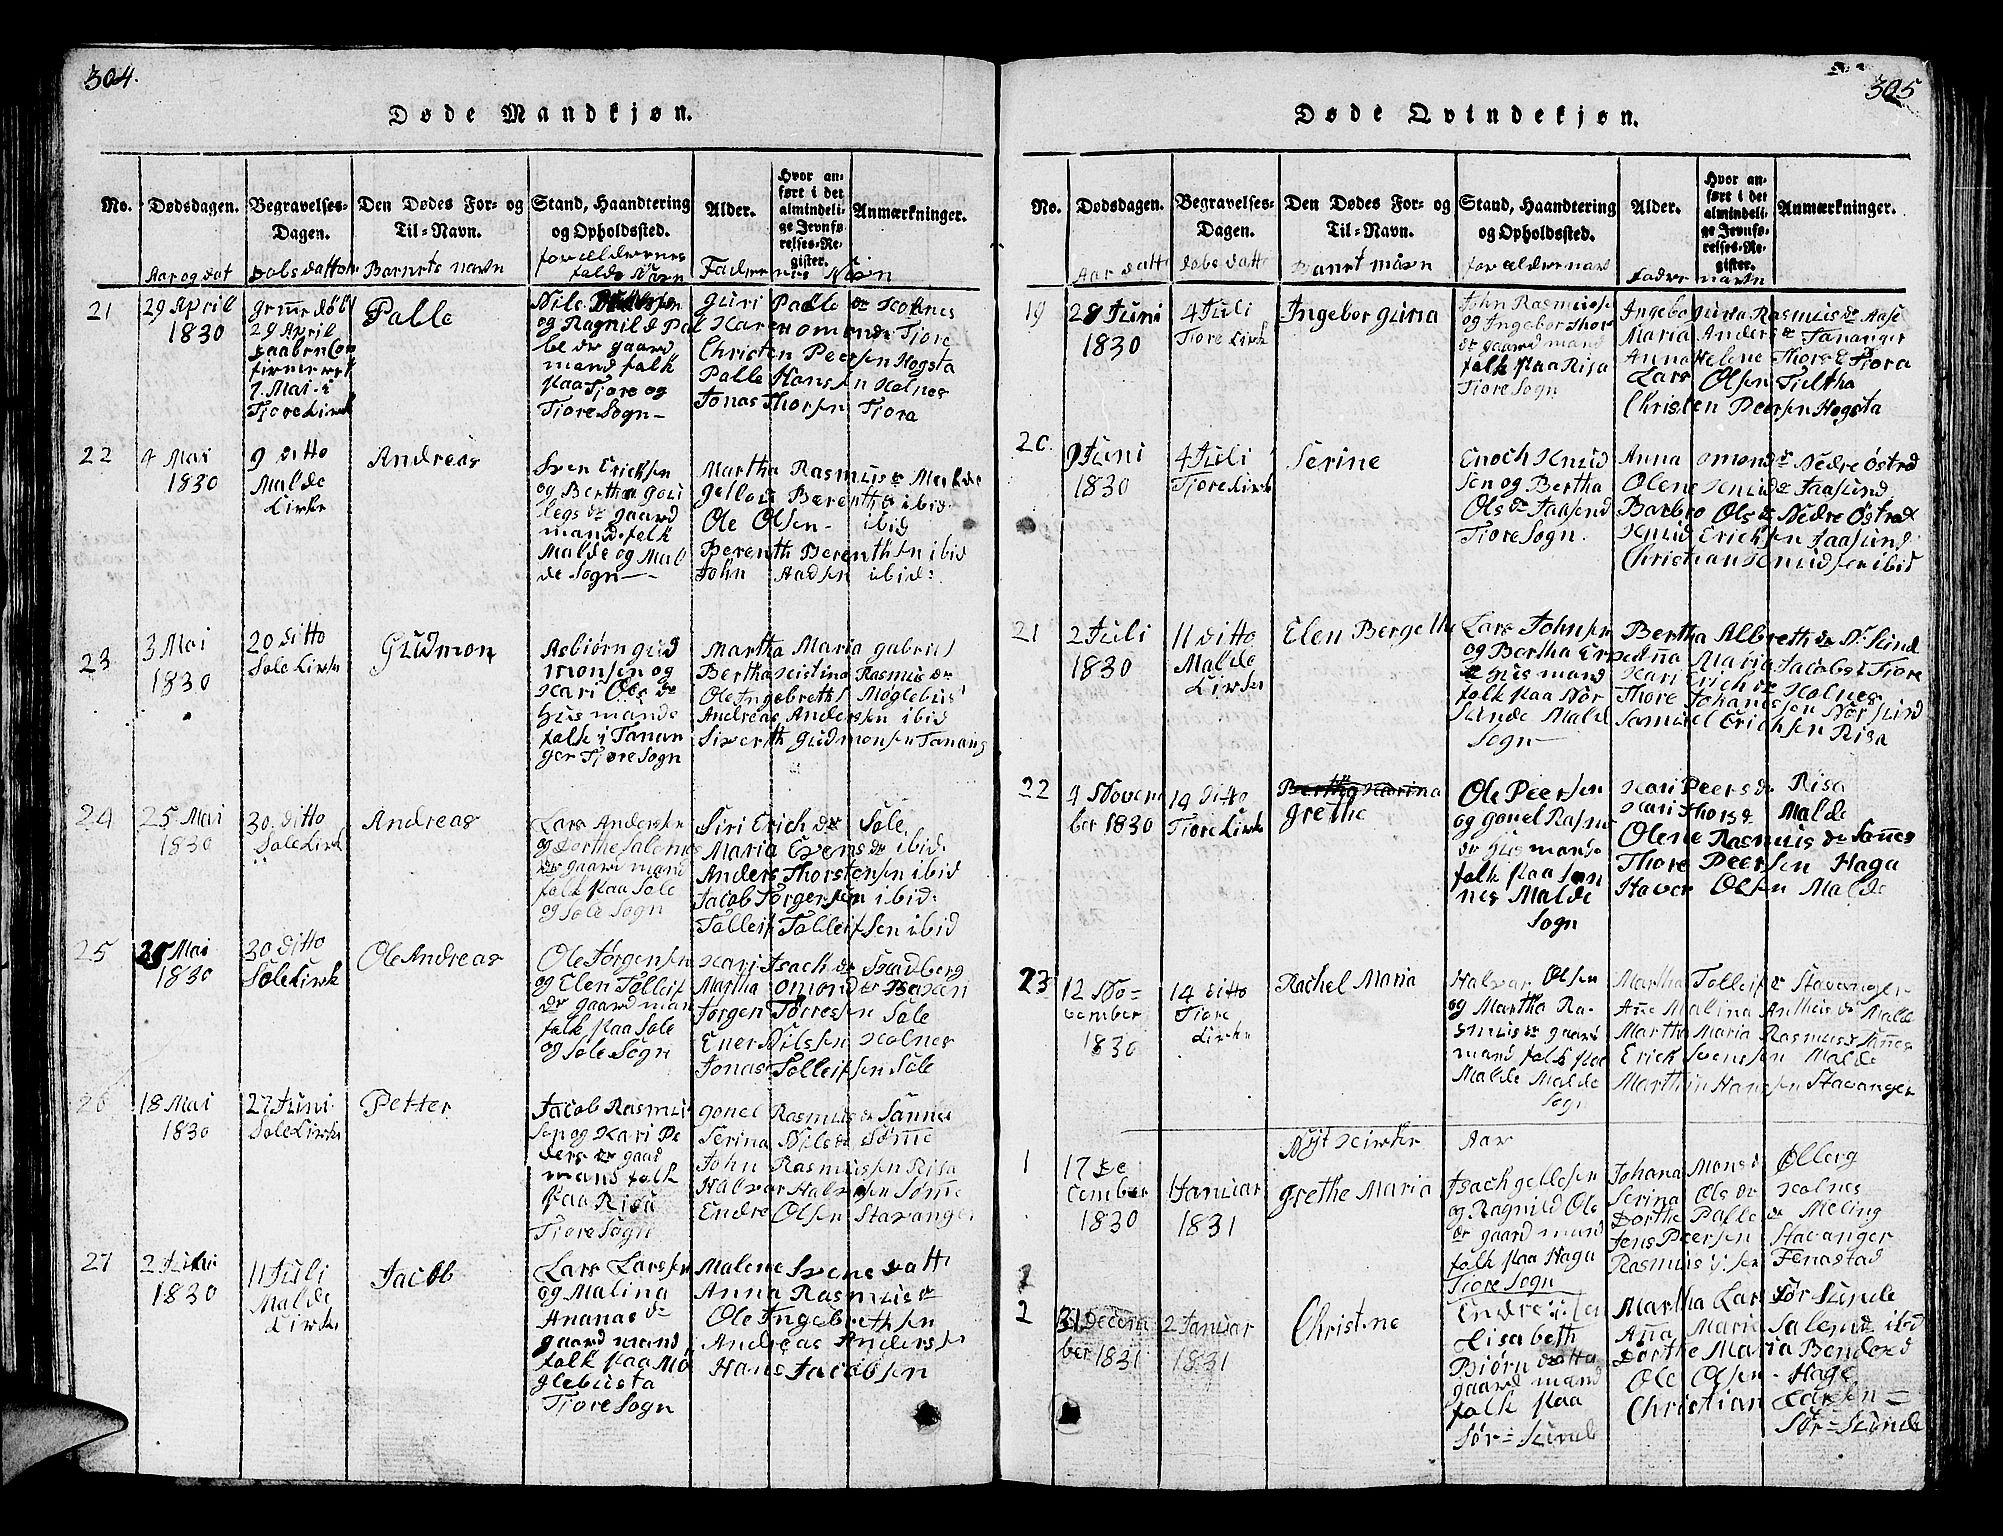 304.
Døde Mandkjøn.
No.
Dødsdagen.
Begravelses-Dagen.
Den Dødes For- og Til-Navn.
Stand, Haandtering og Opholdssted.
Alder.
Hvor anført i det almindelige Jevnførelses-Register.
Anmærkninger.
Aar og dat
Barnets navn
forældrenes
21
29 April
1830
29 April
7. Mai i
Tiore Kirk
Palle
og Ragnild Pal
le dr gaard
mand folk
paa Tiore og
Tiore Sogn
Guri Palle dr Holnes
Karen omonds Tiore
Christen Peersen Hogsta
Palle Hansen Holnes
Jonas Thorsen Tiora
22
4 Mai
1830
9 ditto
Malde
Kirke
Andreas
Sven Ericksen
og Bertha Gou
legs dr gaard
mands folk
Malde og Mal
de Sogn
Martha Rasmus dr Malde
Ole Olsen ibid
Berenth Berenthsen ibid
John Aadsen ibid:
23
3 Mai
1830
20 ditto
Sole Kirke
Gudmon
Asbiørn Gud
monsen og
Kari Ols dr
Husmands
folk i Tanan
ger Tiore Sogn
Martha Maria Gabriel
Bertha Kistina Rasmus dr
Ole Ingebreths Møglebus
Andreas Andersen ibid
Siverth Gudmonsen Tanang
24
25 Mai
1830
30 ditto
Sole Kirk
Andreas
Lars Andersen
og Dorthe Salemos
dr gaard mand
folk paa Sole
og Sole Sogn
Siri Erich dr Sole
Maria Evens dr ibid
Anders Thorstensen ibid
Jacob Jorgensen ibid:
Tolleif Tolleifsen ibid
25
25 Mai
1830
30 ditto
Sole Kirk
Ole Andreas
Ole Jørgensen
og Elen Tolleif
dr gaard man
folk paa Sole
og Sole Sogn
Kari Isach dr Sandberg
Martha omond dr
Jørgen Torresen Sole
Ener Nilssen Holnes
Jonas Tolleifsen Sole
26
18 Mai
1830
27 Juni
Sole Kirke
Petter
Jacob Rasmus
sen og Kari Pe
ders dr gaad
mand folk
paa Risa
Tiore Sogn
Gonel Rasmus dr Sannes
Serina Nils dr Sømme
John Rasmussen Risa
Halvor Halvorsen Sømme
Endre Olsen Stavanger
27
2 Juli
1830
11 Juli
Malde
Kirke
Jacob
Lars Larssen
og Malina
Ananas dr
gaard mand
folk paa Mø
glebusta
Tiore Sogn
Malene Svens datt
Anna Rasmus dr
Ole Ingebrethsen
Andreas Anders
Hans Jacobsen
305
Døde Qvindekjøn.
No.
Dødsdagen.
Begravelses-Dagen.
Den Dødes For- og Til-Navn.
Stand, Haandtering og Opholdssted.
Alder.
Hvor anført i det almindelige Jevnførelses-Register.
Anmærkninger.
Aar datte
dobs datte
19
28 Juni
1830
4 Juli
Tiore Kirk
Ingebor Guria
John Rasmussen
og Ingebor Thor
dr gaard mand
folk paa Risa
Tiore Sogn
Ingebor Guria Rasmus dr Aase
Maria Anders dr Tananger
Anna Helene Tiors dr Tiora
Lars Olsen Tieltha
Christen Peersen Hogsta
20.
9 Juni
1830
4 Juli
Tiore Kirk
Serine
Enoch Knud
sen og Bertha
Ols dr Jaasund
Tiore Sogn.
Anna omond dr Nedre Østrad
Olene Knud dr Jaasund
Barbro Ols dr Nedre Østrad
Knud Ericksen Jaasund
Christian Knudsen ibid
21
2 Juli
1830
11 ditto
Malde
Kirke
Elen Bergethe
Lars Johnsen
og Bertha Erich
dr Husmand
folk paa Nør
Sunde Mald
Sogn
Bertha Albreth dr Nr. Sund
Anna Maria Jacobs dr Tiore
Kari Erich dr Holnes
Thore Johanssen Nør Sund
Samuel Erichsen Risa
22
9 Novem
ber 1830
14 ditto
Tiore Kirke
Bertha Karina
Grethe
Ole Peersen
og Gonel Rasmus
dr Husmands
folk paa San
nes Malde
Sogn
Kari Peers dr Risa
Kari Thors dr Malde
Olene Rasmus dr Sannes
Thore Peersen Haga
Haver Olsen Malde
23
12 No-
vember
1830
14 ditto
Tiore
Kirke
Rachel Maria
Halvor Olsen
og Martha Ra-
smus dr gaard
mand folk paa
Malde Malde
Sogn
Martha Tolleif dr Stavanger
Ane Malina Antheis dr Malde
Martha Maria Rasmus dr Sannes
Erick Svenssen Malde
Marthin Hansen Stavanger
Nyt Kirke Aar
1
17 De
cember
1830
1 Januar
1831
Grethe Maria
Isach Gellesen
og Ragnild Ole
dr gaard mand
folk paa Haga
Tiore Sogn
Johana Mons dr Ølberg
Serina Ols dr Holnes
Dorthe Palle dr Meling
Jens Peersen Stavanger
Fenastad
2
31 Decem
ber 1831
2 Januar
1831
Christine
Lisabeth
Biørn datter
gaard mand
folk paa
Sør=Sunde
Martha Lars Sør Sunde
Ana Maria Salem dr ibid
Dorthe Maria
Ole Olsen - Hage
Christian Larsen =
Sør=Sunde